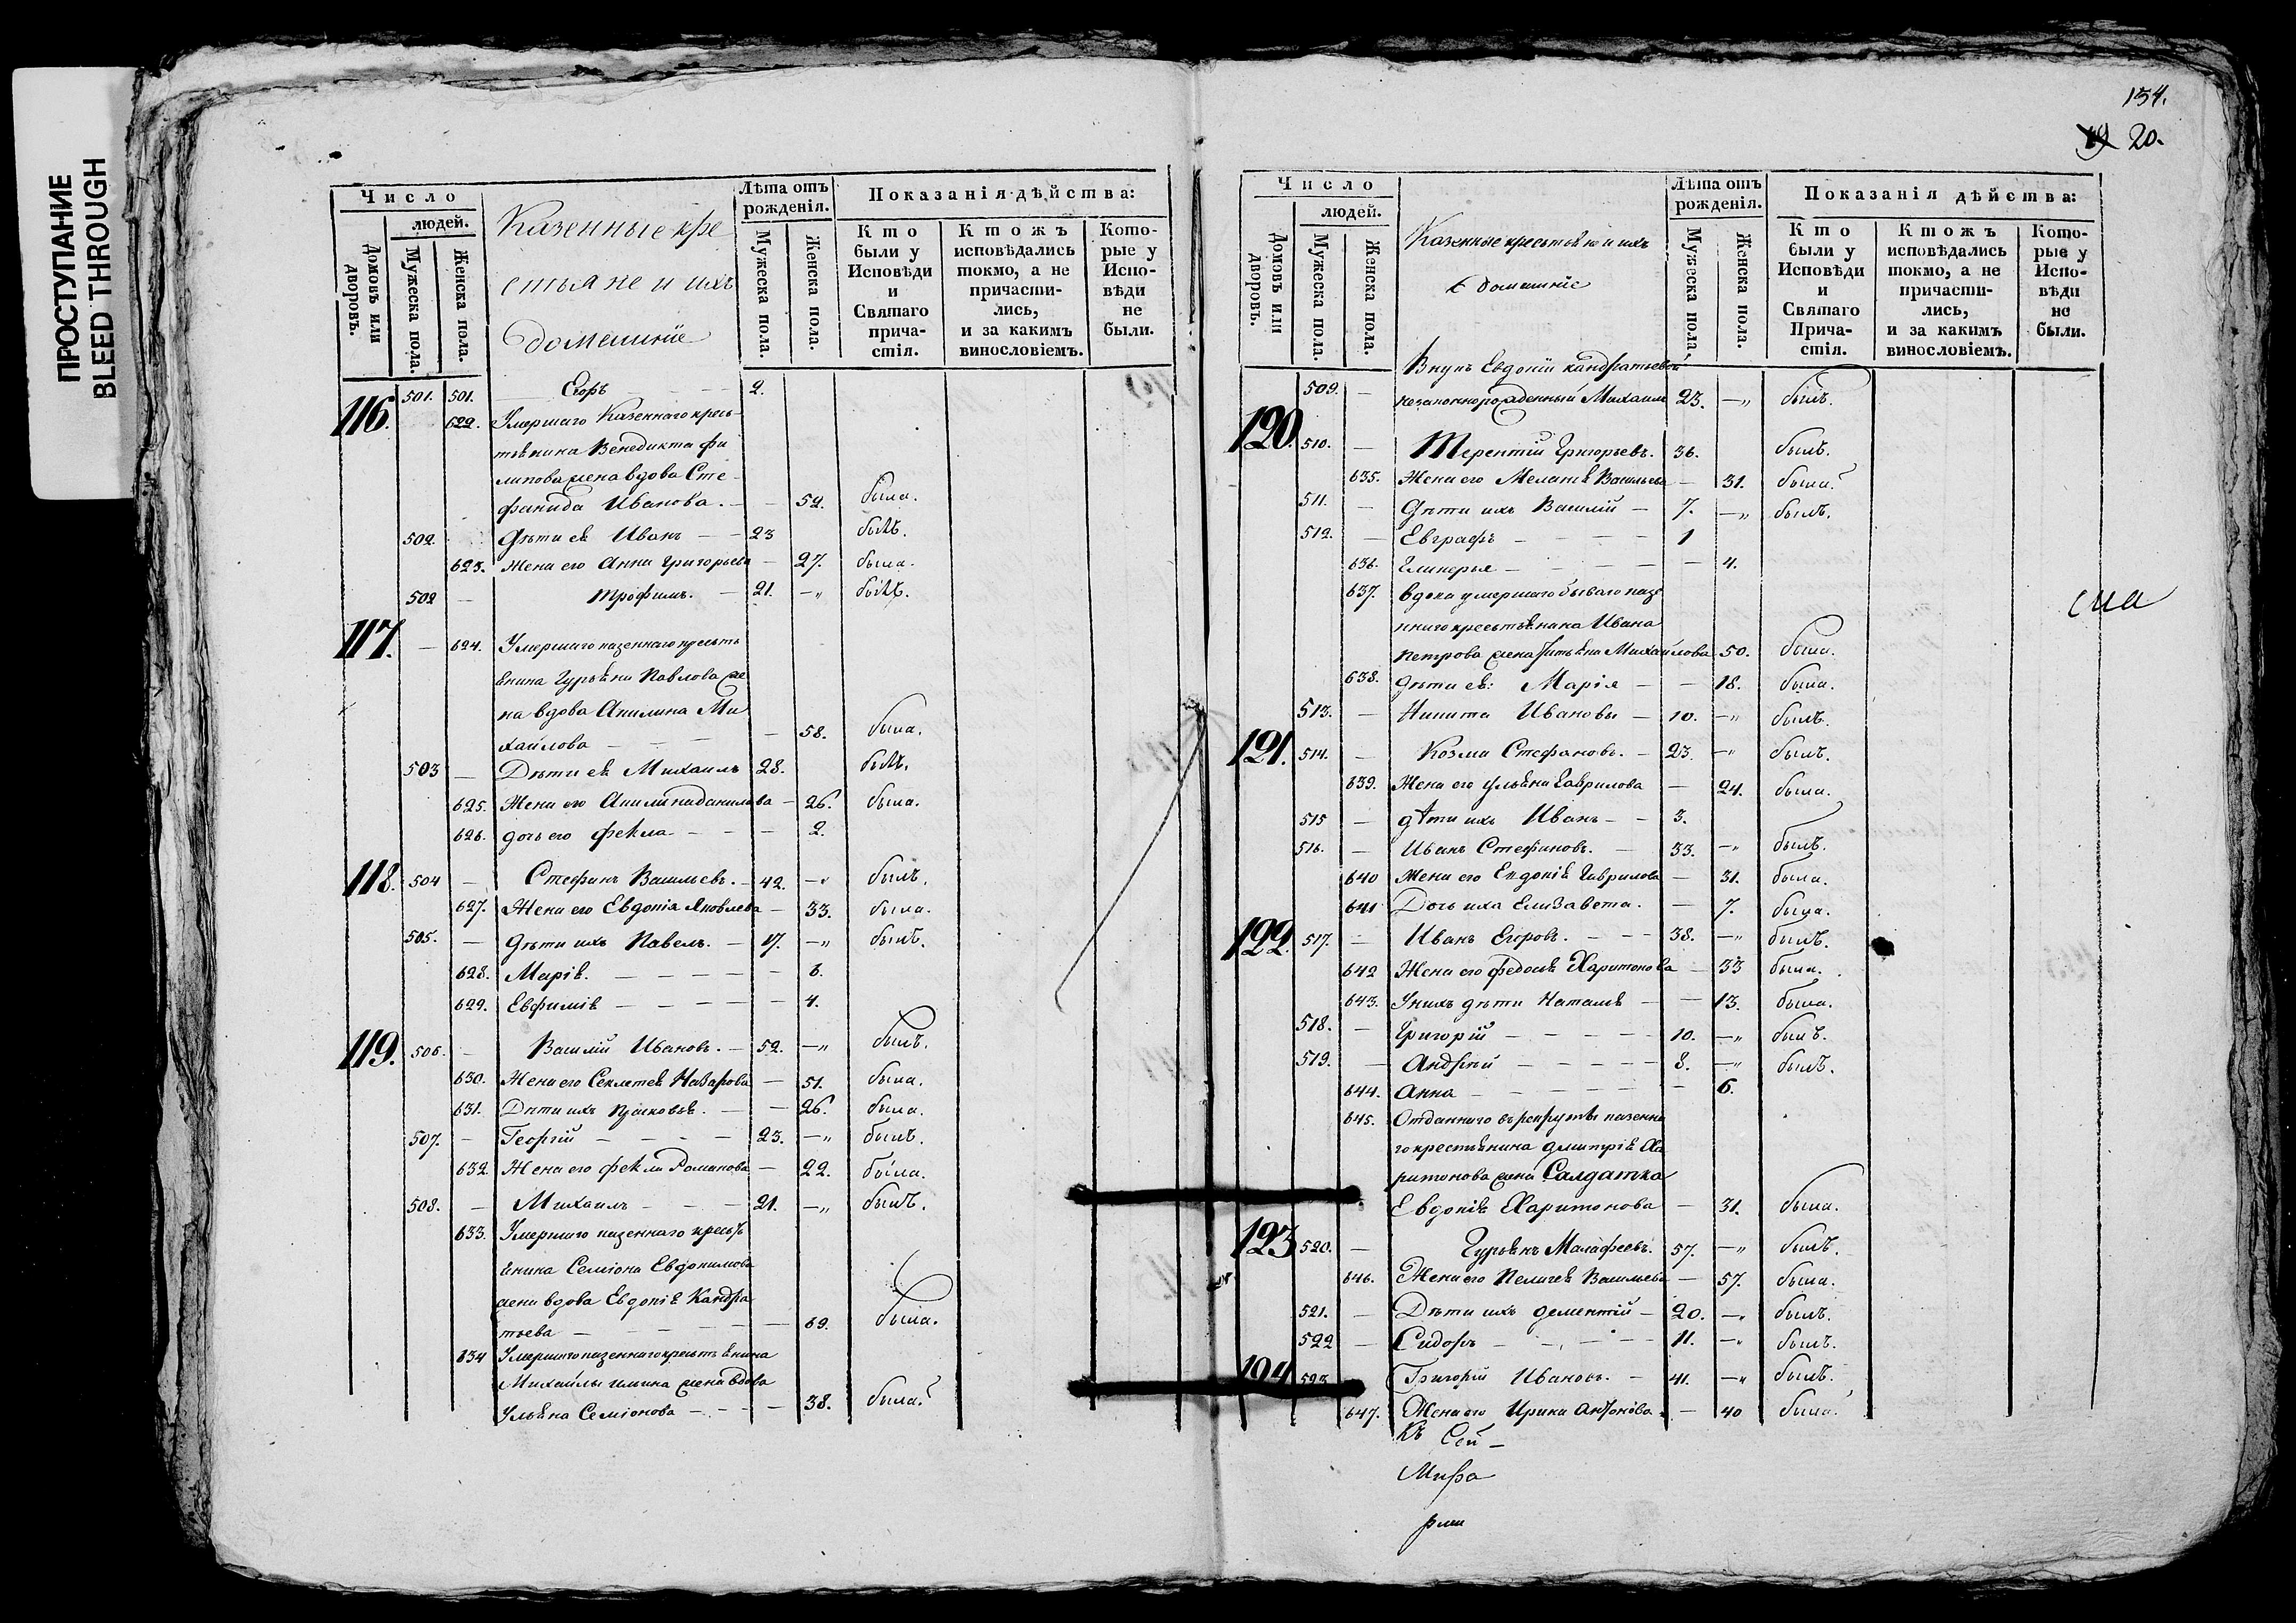 ПРОСТУПАНИЕ
BLEED THROUGH
Число
людей.
Домовъ или дворовъ.
Мужеска пола.
Женска пола.
Казенные кре
стьяне и ихъ
домашніе
Лѣта отъ рожденія.
Мужеска пола.
Женска пола.
Показанія дѣйства:
Кто были у Исповѣди и Святаго причастія.
Ктожъ исповѣдались токмо, а не причастились, и за какимъ винословіемъ.
Которые у Исповѣди не были.
501. 501. Егоръ 2.
116. 622. Умершаго Казеннаго кресь
тьянина Венедикта Фи
липова жена вдова Сте
фанида Иванова. 52. была.
502. Дѣти ея Иванъ 23 былъ.
623. Жена его Анна Григорьева 27. была.
502 Трофимъ. 21. былъ.
117. 624. Умершаго казеннаго кресть
янина Гурьяна Павлова же
на вдова Акилина Ми
хайлова 58. была.
503 Дѣти ея Михаилъ 28. былъ.
625. Жена его Акилина Данилова 26. была.
626. дочь его Фекла 2.
118. 504 Стефанъ Васильевъ. 42. былъ.
627. Жена его Евдокія Яковлева 33. была.
505. Дѣти ихъ Павелъ. 17. былъ.
628. Марія. 6.
629. Евфимія 4.
119. 506. Василій Ивановъ. 52. былъ.
630. Жена его Секлетея Назарова 51. была.
631. Дѣти ихъ Прасковья. 26. была.
507. Георгій 23. былъ.
632. Жена его Фекла Романова 22. была.
508. Михаилъ 21. былъ.
633. Умершаго казеннаго кресть
янина Семіона
жена вдова Евдокія Кандра
тьева 69. была.
634 Умершаго казеннаго крестьянина
Михайлы жена вдова
Ульяна Семіонова 38. была.
134.
19 20.
Число
людей.
Домовъ или дворовъ.
Мужеска пола.
Женска пола.
Казенные крестьяне и ихъ
домашніе
Лѣта отъ рожденія.
Мужеска пола.
Женска пола.
Показанія дѣйства:
Кто были у Исповѣди и Святаго Причастія.
Ктожъ исповѣдались токмо, а не причастились, и за какимъ винословіемъ.
Которые у Исповѣди не были.
Внукъ Евдокіи Кандратьевой
509. незаконнорожденный Михаилъ 23. былъ.
120. 510. Терентій Григорьевъ. 36. былъ.
635. Жена его Меланья Васильева 31. была.
511. Дѣти ихъ Василій 7. былъ.
512. Евграфъ 1
636. Гликерья 4.
637. вдова умершаго бываго казе
ннаго крестьянина Ивана
Петрова жена Татьяна Михайлова 50. была.
638. дѣти ея: Марія 18. была.
513. Никита Ивановы 10. былъ.
121. 514. Козма Стефановъ. 23. былъ.
639. Жена его Ульяна Гаврилова 24. была.
515 дѣти ихъ Иванъ 3.
516. Иванъ Стефановъ. 33. былъ.
640 Жена его Евдокія Гаврилова 31. была.
641 Дочь ихъ Елизавета. 7. была.
122. 517. Иванъ Егоровъ. 38. былъ.
642 Жена его Федосья Харитонова 33 была.
643. У нихъ дѣти Наталья 13. была.
518. Григорій 10. былъ.
519. Андрей 8. былъ.
644. Анна 6.
645. Отданнаго въ рекруты казенна
го крестьянина Дмитрія Ха
ритонова жена Салдатка
Евдокія Харитонова 31. была.
123 520. Гурьянъ Малафеевъ. 57. былъ.
646. Жена его Пелагея Васильева 57. была.
521. Дѣти ихъ Дементій 20. былъ.
522 Сидоръ 11. былъ.
124 523 Григорій Ивановъ. 41. былъ.
647. Жена его Ирина Антонова. 40 была.
Къ Сей